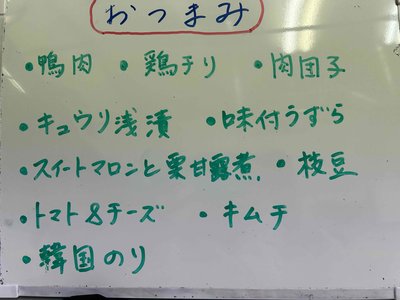 おつまみ
・鴨肉 ・鶏チリ ・肉団子
・キュウリ浅漬 ・味付うずら
・スイートマロンと栗甘露煮 ・枝豆
・トマト&チーズ ・キムチ
・韓国のり